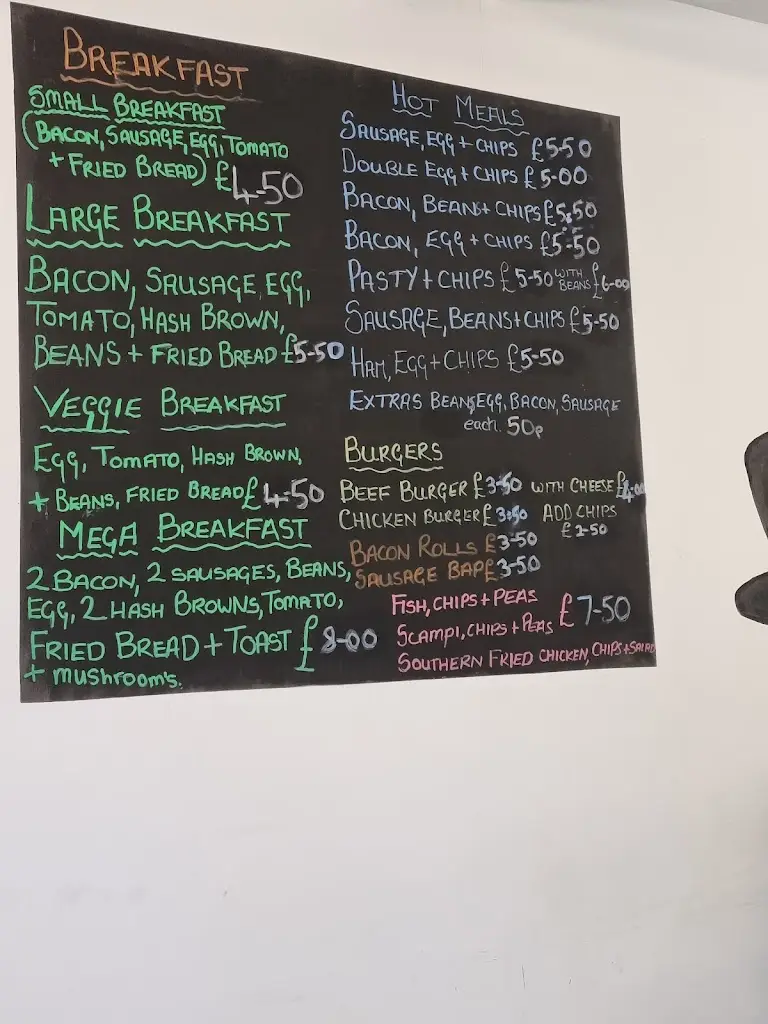 BREAKFAST
SMALL BREAKFAST
(BACON, SAUSAGE, EGG, TOMATO
+ FRIED BREAD) £4-50
LARGE BREAKFAST
BACON, SAUSAGE, EGG,
TOMATO, HASH BROWN,
BEANS + FRIED BREAD £5-50
VEGGIE BREAKFAST
EGG, TOMATO, HASH BROWN,
+ BEANS, FRIED BREAD £4-50
MEGA BREAKFAST
2 BACON, 2 SAUSAGES, BEANS,
EGG, 2 HASH BROWNS, TOMATO,
FRIED BREAD + TOAST £8-00
+ MUSHROOM'S.
HOT MEALS
SAUSAGE, EGG + CHIPS £5-50
DOUBLE EGG + CHIPS £5-00
BACON, BEANS + CHIPS £5-50
BACON, EGG + CHIPS £5-50
PASTY + CHIPS £5-50 WITH BEANS £6-00
SAUSAGE, BEANS + CHIPS £5-50
HAM, EGG + CHIPS £5-50
EXTRAS BEANS, EGG, BACON, SAUSAGE
each. 50p
BURGERS
BEEF BURGER £3-50 WITH CHEESE £4-00
CHICKEN BURGER £3-50 ADD CHIPS
£2-50
BACON ROLLS £3-50
SAUSAGE BAP £3-50
FISH, CHIPS + PEAS
SCAMPI, CHIPS + PEAS £7-50
SOUTHERN FRIED CHICKEN, CHIPS + SALAD